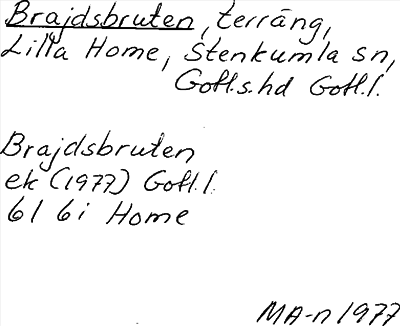 Brajdsbruten, terräng,
Lilla Home, Stenkumla sn,
Gotl.s.hd Gotl.l.
Brajdsbruten
ek (1977) Gotl.l.
6I 6i Home
MA-n 1977